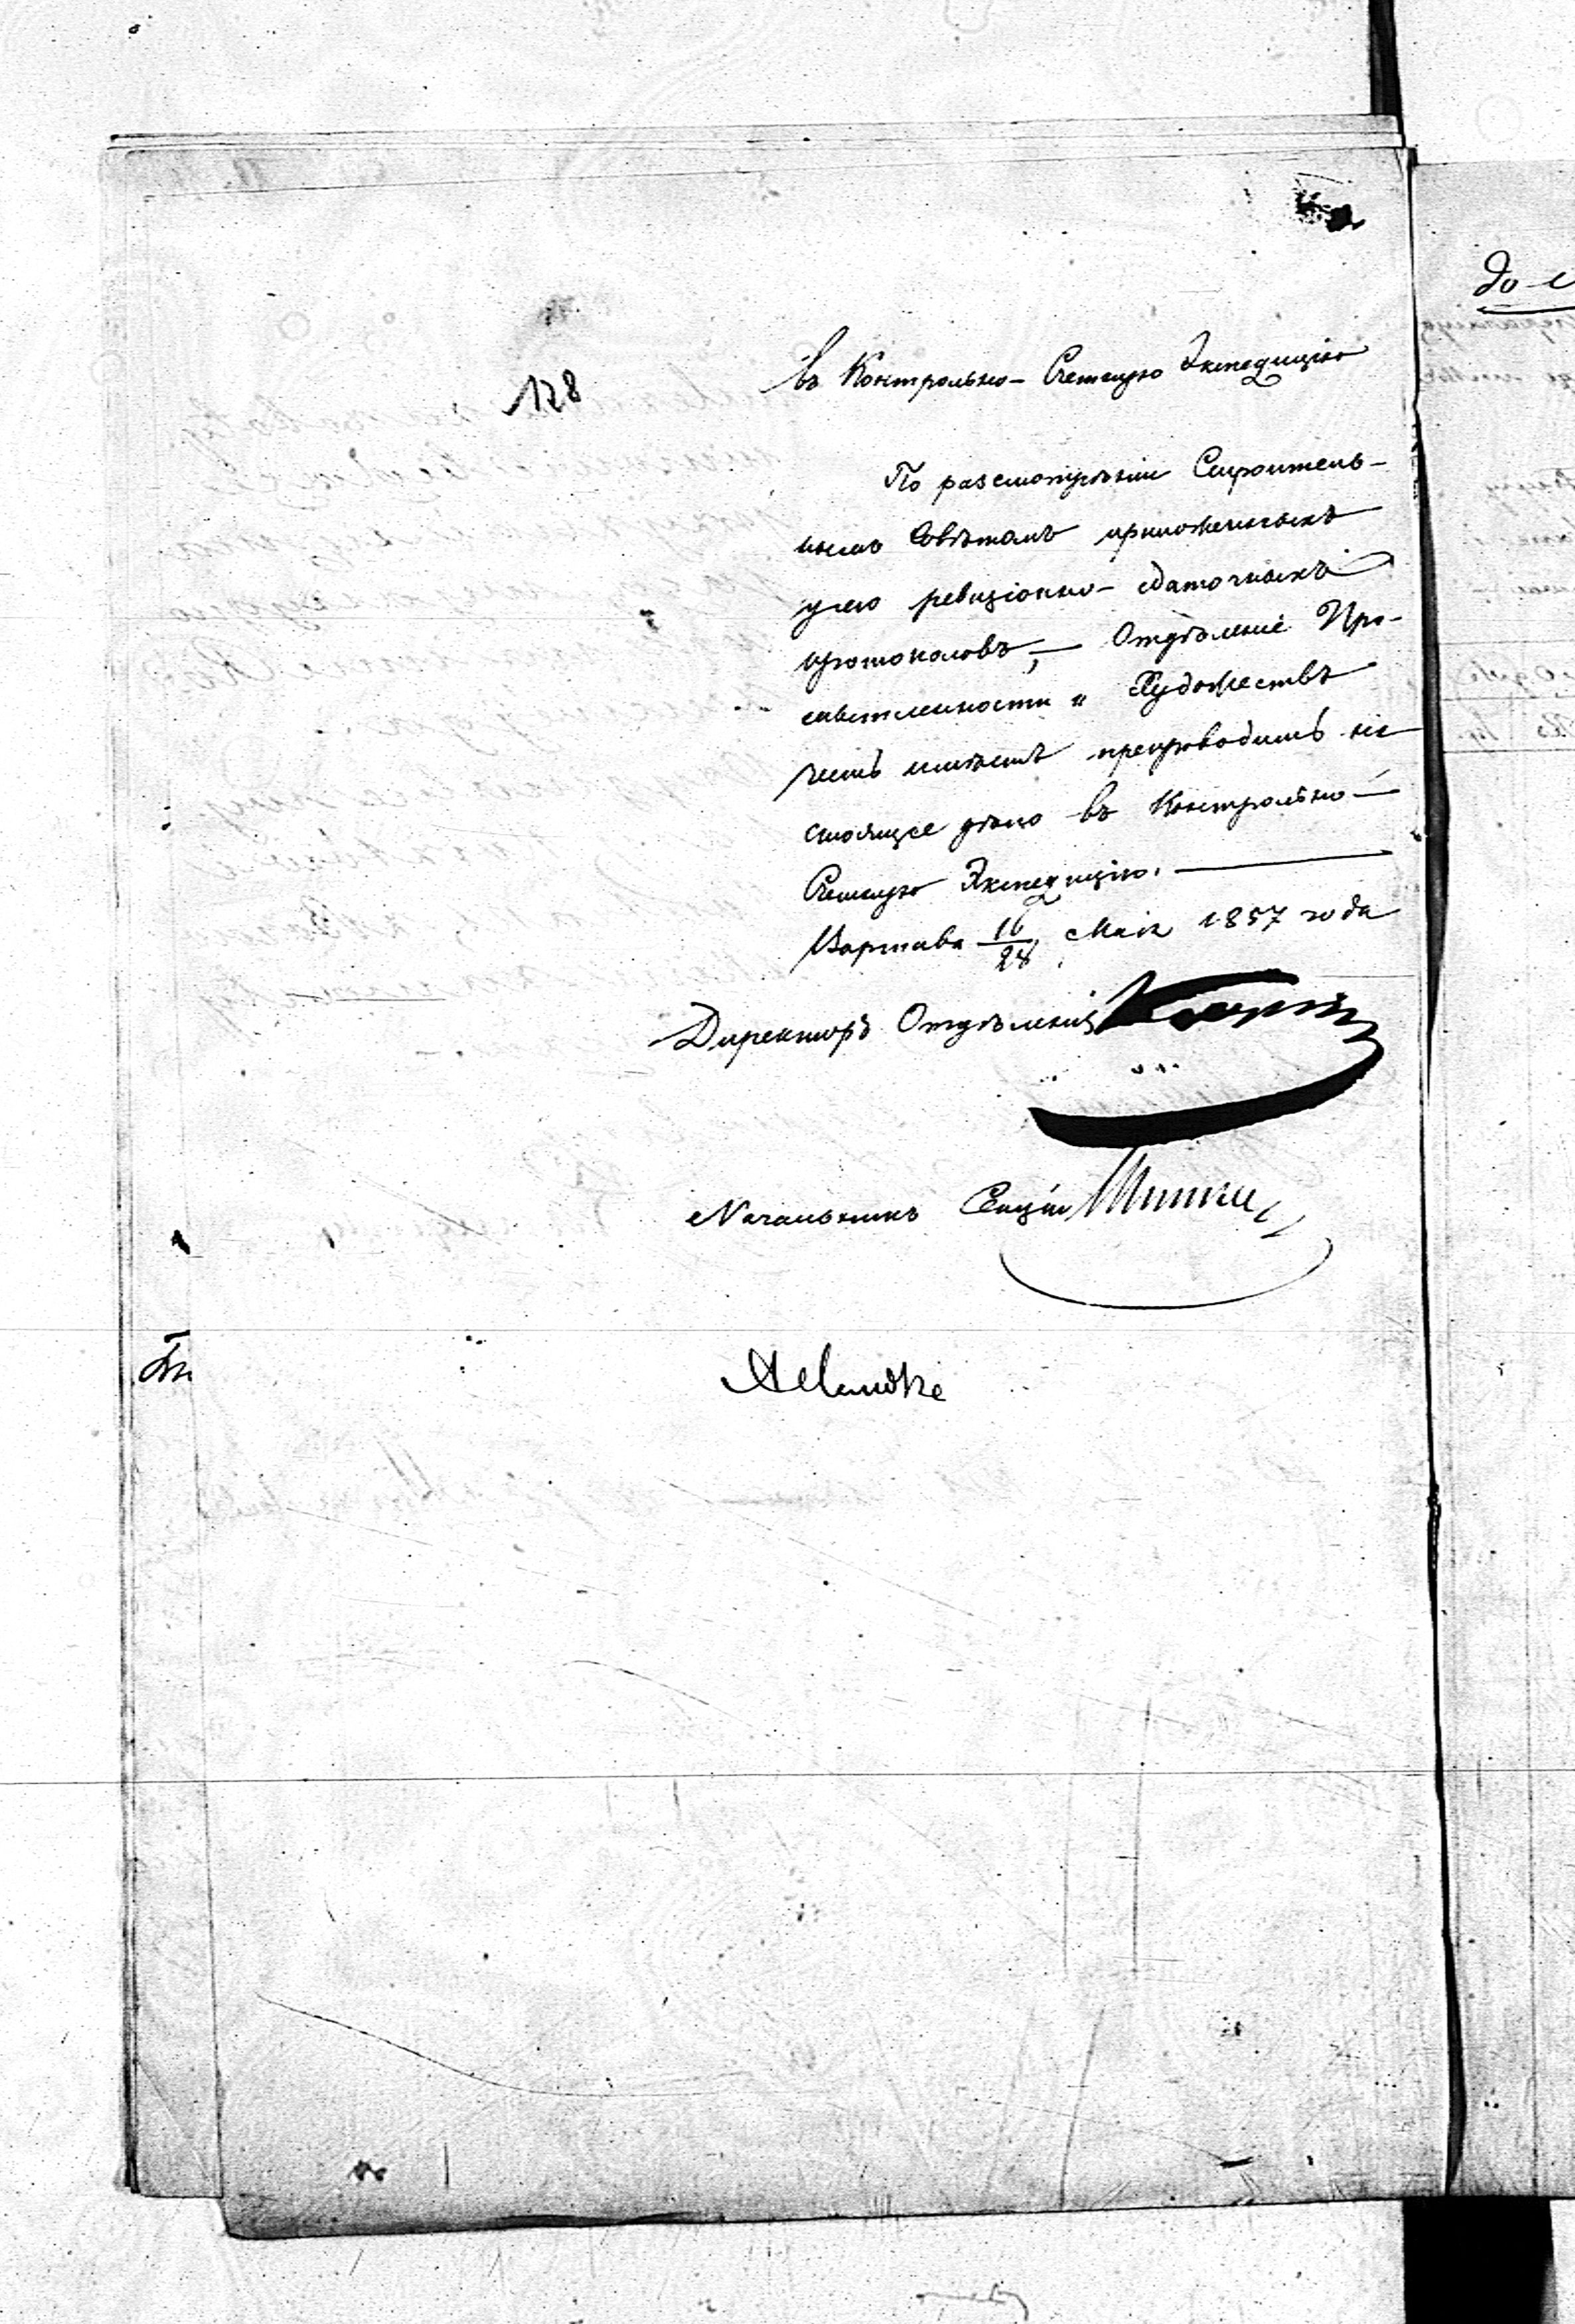 128
Въ Контрольно-Счетную Экспедицію
По разсмотрѣніи Строитель-
нымъ Совѣтомъ приложенныхъ
у сего ревизіонно-сдаточныхъ
протоколовъ, — Отдѣленіе Про-
мышленности и Художествъ
честь имѣетъ препроводить на-
стоящее дѣло въ Контрольно-
Счетную Экспедицію. —
Варшава 16/28 Мая 1857 года
Директоръ Отдѣленія
Начальникъ Секціи